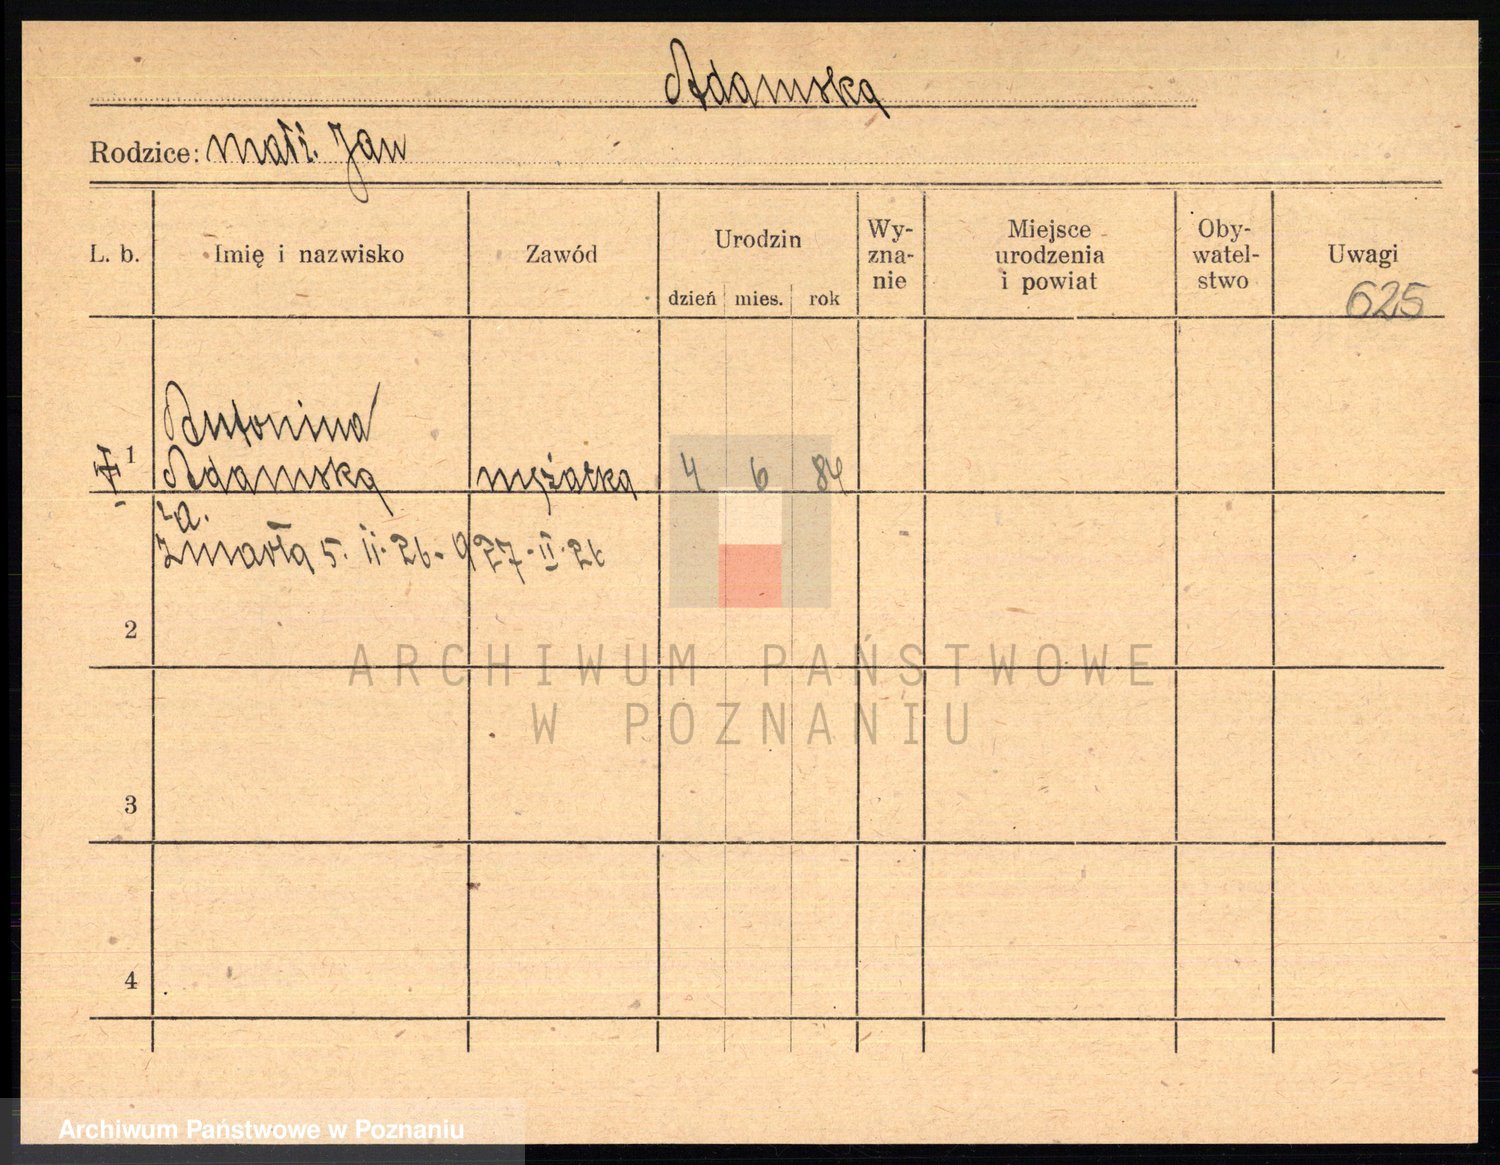 Adamska
Rodzice: małż. Jan
L. b. Imię i nazwisko Zawód Urodzin dzień mies. rok Wy-zna-nie Miejsce urodzenia i powiat Oby-watel-stwo Uwagi
625
Antonina
1 Adamska mężatka 4 6 84
za.
Zmarła 5. II. 26. 27. II. 26
2
ARCHIWUM PAŃSTWOWE
W POZNANIU
3
4
Archiwum Państwowe w Poznaniu